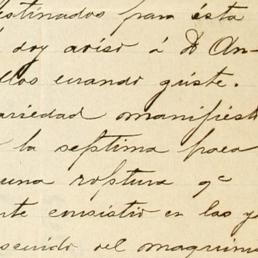 estinados para ésta
doy aviso á D. An-
llos cuando guste.
ariedad manifiést
la septima para
una roptura qe
te consistio en las
scuido del maquini